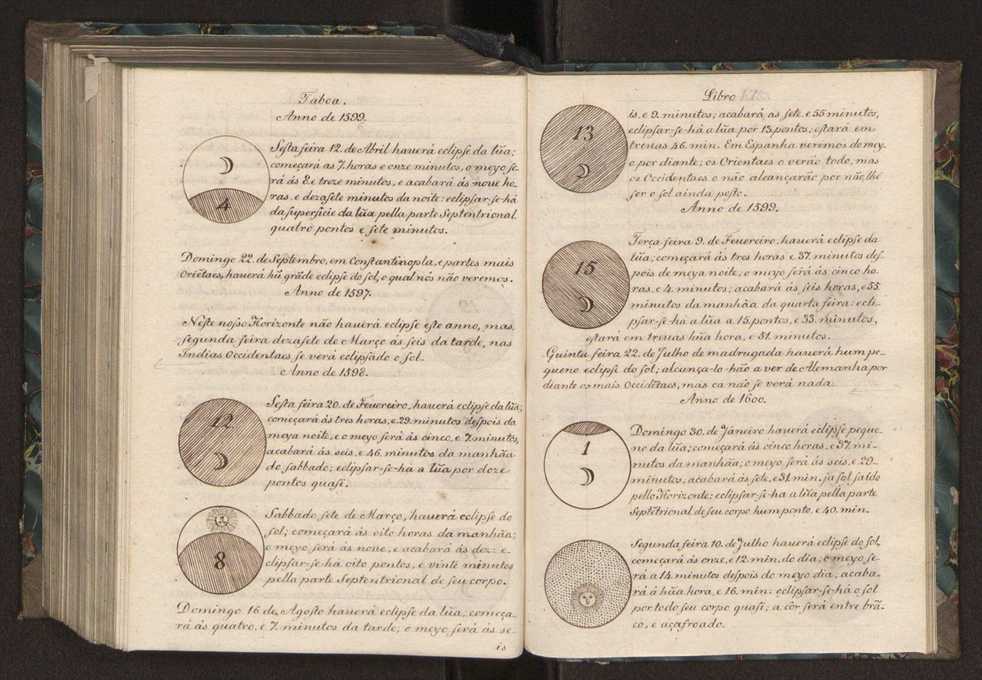 Taboa.
Anno de 1599.
Sesta feira 12. de Abril hauerá eclipse da lũa;
começará as 7. horas e onze minutos, o meyo se-
rá ás 8. e treze minutos, e acabará ás noue ho-
ras, e dezasete minutos da noite: eclipsar-se-há
da superficie da lũa pella parte Septentrional
quatro pontos e sete minutos.
4
Domingo 22. de Septembro, em Constantinopla, e partes mais
Oriẽtaes, hauerá hũ grãde eclipse do sol, o qual nós não veremos.
Anno de 1597.
Neste nosso Horizonte não hauerá eclipse este anno, mas
segunda feira dezasete de Março ás seis da tarde, nas
Indias Occidentaes, se verá eclipsádo o sol.
Anno de 1598.
12
Sesta feira 20. de Feuereiro, hauerá eclipse da lũa;
começará ás tres horas, e 29. minutos despois da
meya noite, e o meyo será ás cinco, e 7. minutos,
acabará ás seis, e 46. minutos da manhãa
do sabbado; eclipsar-se-há a lũa por doze
pontos quasi.
8
Sabbado sete de Março, hauerá eclipse do
sol; começará ás oito horas da manhãa;
o meyo será ás noue, e acabará ás dez: e-
clipsar-se-há oito pontos, e vinte minutos
pella parte Septentrional de seu corpo.
Domingo 16. de Agosto hauerá eclipse da lũa, começa-
rá ás quatro, e 7. minutos da tarde; o meyo será ás se-
is
Libro
13
is, e 9. minutos; acabará, as sete, e 55 minutos,
eclipsar-se-há a lũa por 13 pontos, estará em
treuas 46. min. Em Espanha veremos do mey-
o por diante; os Orientaes o verão todo, mas
os Occidentaes o não alcançarão por não lhe
ser o sol ainda posto.
Anno de 1599.
15
Terça feira 9. de Feuereiro, hauerá eclipse da
lũa; começará ás tres horas e 37. minutos des-
pois de meya noite, o meyo será ás cinco ho-
ras, e 4. minutos; acabará ás seis horas, e 55
minutos da manhãa da quarta feira: ecli-
psar-se-há a lũa a 15. pontos, e 33. minutos,
estará em treuas hũa hora, e 51. minutos.
Quinta feira, 22. de Julho de madrugada hauerá hum pe-
queno eclipse do sol; alcança-lo-hão a ver de Alemanha por
diante os mais Occidẽtaes, mas ca não se verá nada.
Anno de 1600.
1
Domingo 30. de Janeiro hauerá eclipse peque-
no da lũa; começará ás cinco horas, e 37. mi-
nutos da manhãa; o meyo será ás seis, e 29-
minutos, acabará ás sete, e 31. min. ja sol saído
pello Horizonte: eclipsar-se-ha a lũa pella parte
Septẽtrional de seu corpo hum ponto, e 40. min.
Segunda feira 10. de Julho hauerá eclipse do sol,
começará ás onze, e 12. min. do dia; o meyo se-
rá a 14. minutos despois do meyo dia, acaba-
rá á hũa hora, e 16. min: eclipsar-se-há o sol
por todo seu corpo quasi; a côr será entre brã-
co, e açafroado.